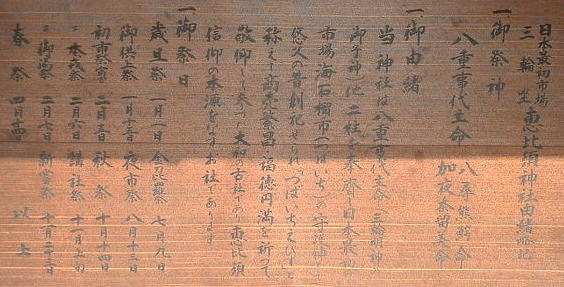 日本最初市場
三輪坐恵比須神社由緒略記
一御祭神
八重事代主命 八尋熊鰐命
加夜奈留美命
一御由緒
当神社は八重事代主命(三輪明神の
御子神)他二社を奉齋し日本最初
市場海石榴市(つばいち)の守護神として
悠久の昔創祀せられ、つばいちえびすと
称えて商売繁昌福徳円満を祈って
敬仰して参った大和の古社であり恵比須
信仰の本源をなすお社であります
一御祭日
歳旦祭 一月一日
御供上祭
初市祭宵宮 二月五日
二 本義祭 二月六日
二 御湯祭 二月七日
春祭 四月十四日
金毘羅祭 七月九日
夜市祭 八月十三日
秋祭 十月十四日
講社祭 十一月上旬
新嘗祭 十一月二十三日
以上